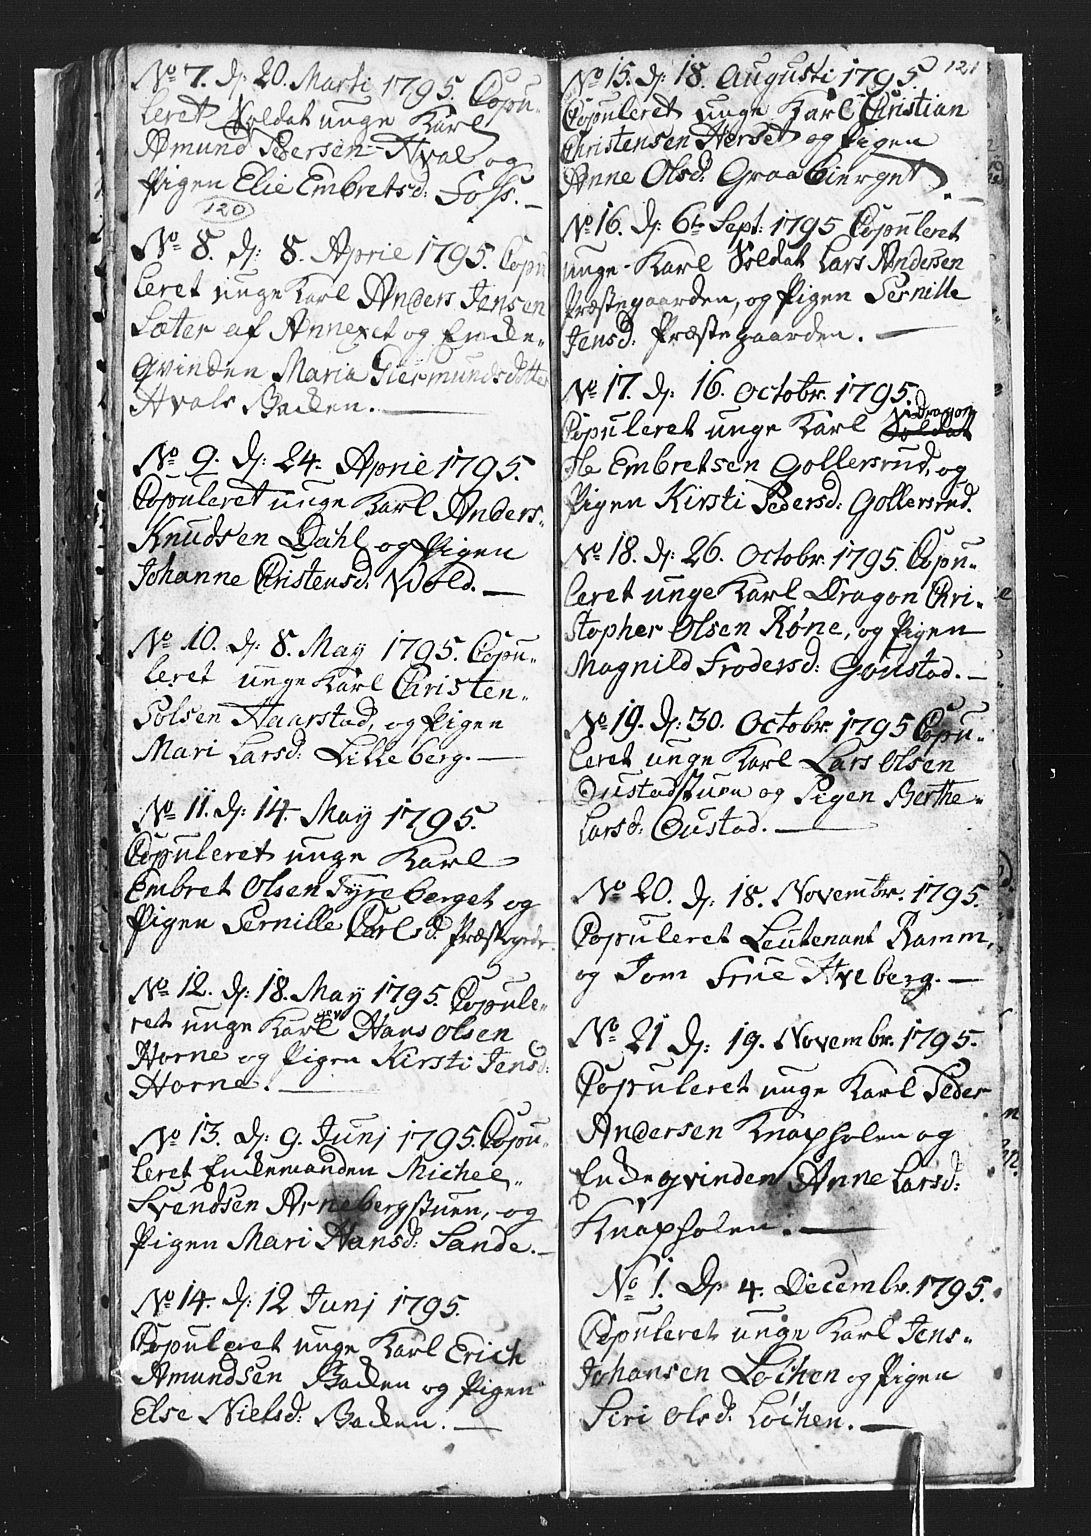 No 7. D: 20. Marti 1795. Copu-
leret Soldat unge Karl
Amund Pedersen Hval og
Pigen Elie Embretsd: Foss. —
120
No 8. D: 8. April 1795. Copu
leret unge Karl Anders Jensen
Sæter af Annexet og Encke-
Qvinden Maria Giermundsdotter
Hvals Backen. —
No 9. D: 24. April 1795.
Copuleret unge Karl Anders-
Knudsen Dahl og Pigen
Johanne Christensd: Wold. —
No 10. D: 8. May 1795. Copu-
leret unge Karl Christen-
Polsen Haarstad, og Pigen
Mari Larsd: Lilleberg. —
No 11. D: 14. May 1795.
Copuleret unge Karl
Embret Olsen Fyreberget og
Pigen Pernille Carlsd: Præstegrdn
No 12. D: 18. May 1795. Copule-
ret unge Karl Hans Olsen
Horne og Pigen Kirsti Jensd:
Horne. —
No 13. D: 9. Junj 1795. Copu-
leret Enckemanden Michel-
Svendsen Arnebergstuen, og
Pigen Mari Hansd: Sande. —
No 14. D: 12 Junj 1795.
Copuleret unge Karl Erich
Amundsen Backen og Pigen
Else Nielsd: Backen. —
121
No 15. D: 18. Augusti 1795
Copuleret unge Karl Christian
Christensen Herset og Pigen
Anne Olsd: Graabierget. —
No 16. D: 6te Sept: 1795 Copuleret
unge Karl Soldat Lars Andersen
Præstegaarden, og Pigen Pernille
Jensd: Præstegaarden. —
No 17. D: 16. Octobr. 1795.
Dragon
Copuleret unge Karl Soldat
Ole Embretsen Gollersrud, og
Pigen Kirsti Pedersd: Gollersrud.
No 18. D: 26. Octobr. 1795. Copu-
leret unge Karl Dragon Chri-
stopher Olsen Røne, og Pigen
Magnild Frodersd: Goustad. —
No 19. D: 30. Octobr. 1795 Copu-
leret unge Karl Lars Olsen
Oustadstuen og Pigen Berthe-
Larsd: Oustad. —
No 20. D: 18. Novembr. 1795.
Copuleret Leutenant Ramm,
og Jomfrue Hveberg. —
No 21 D: 19. Novembr. 1795.
Copuleret unge Karl Peder
Andersen Knapholen og
Enckeqvinden Anne Larsd:
Knapholen. —
No 1. D: 4. Decembr. 1795.
Copuleret unge Karl Jens-
Johansen Løchen og Pigen
Siri Olsd: Løchen. —